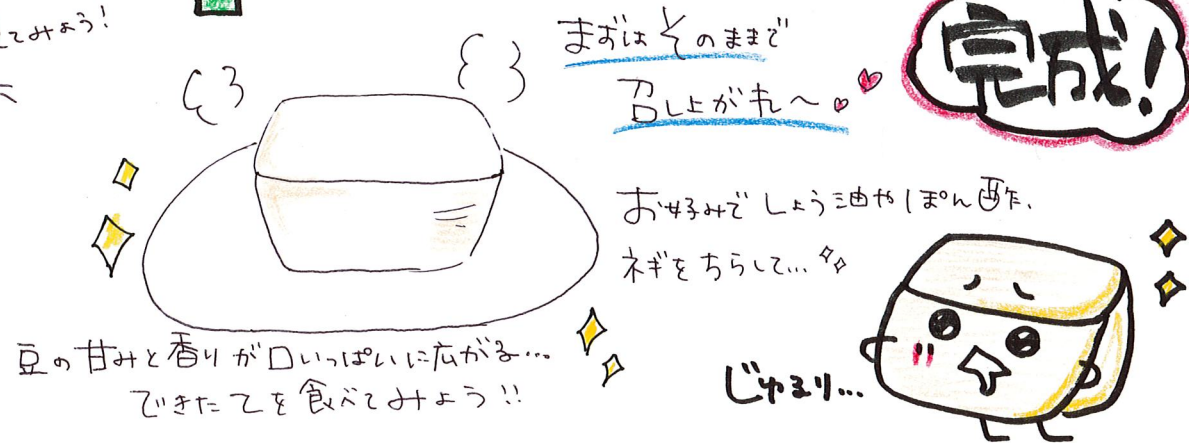 てみよう!
まずは そのままで
召し上がれ〜
完成!
お好みで しょう油や ぽん酢、
ネギを ちらして...
豆の甘みと香りが口いっぱいに広がる...
できたてを食べてみよう!!
じゅるり...